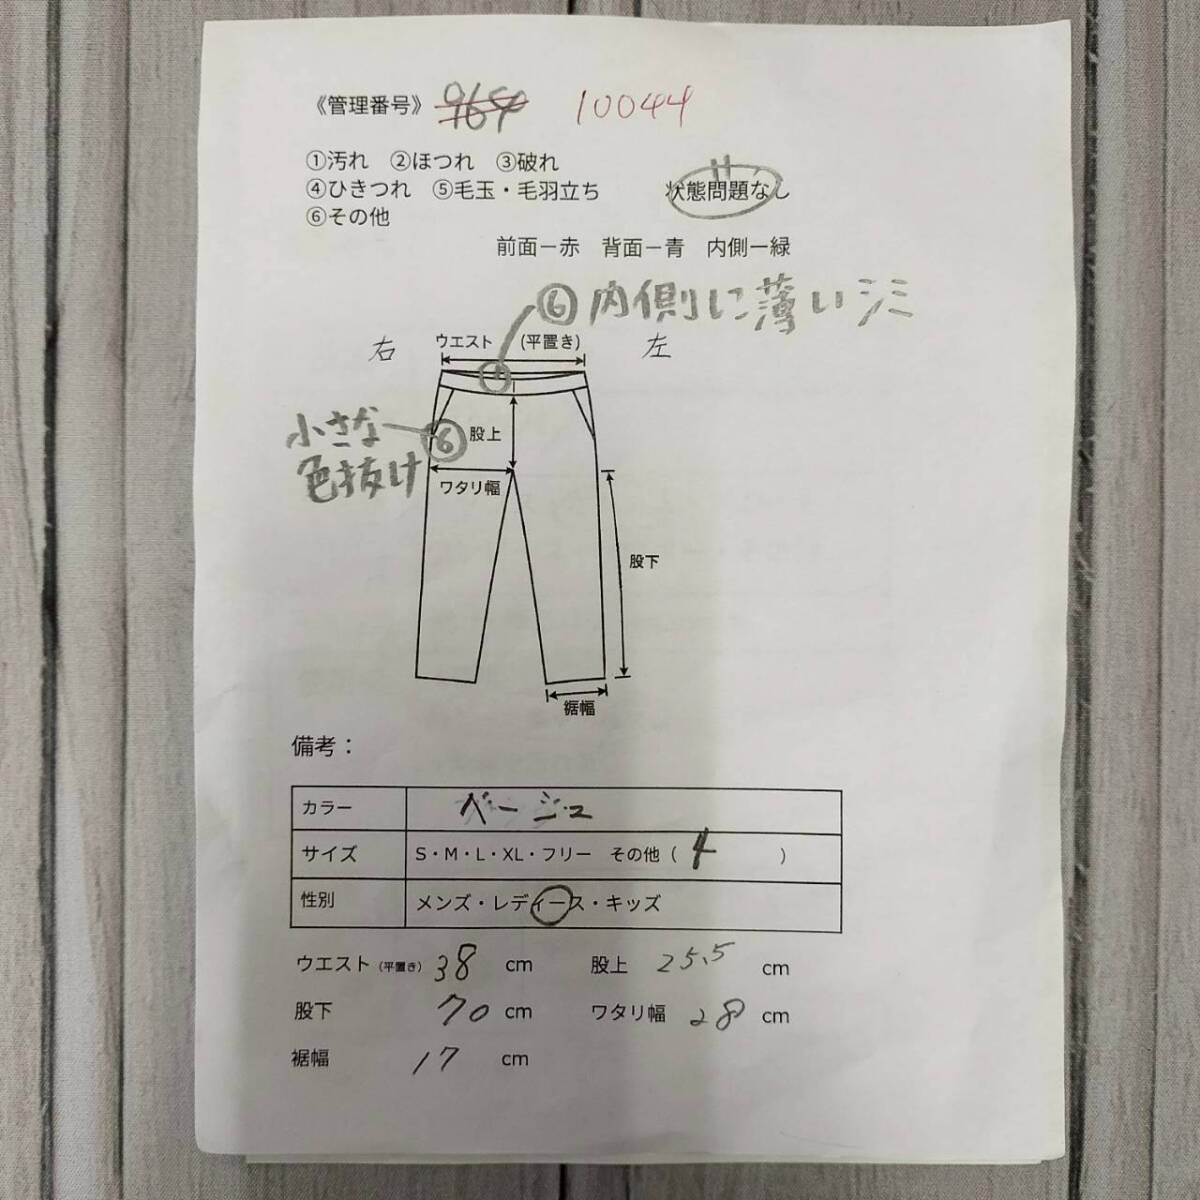 《管理番号》 964 10044
①汚れ ②ほつれ ③破れ
④ひきつれ ⑤毛玉・毛羽立ち 状態問題なし
⑥その他
前面－赤 背面－青 内側－緑
⑥内側に薄いシミ
右 ウエスト (平置き) 左
小さな ⑥ 股上
色抜け
ワタリ幅
股下
裾幅
備考：
カラー ベージュ
サイズ S・M・L・XL・フリー その他（ 4 ）
性別 メンズ・レディース・キッズ
ウエスト（平置き） 38 cm 股上 25.5 cm
股下 70 cm ワタリ幅 28 cm
裾幅 17 cm